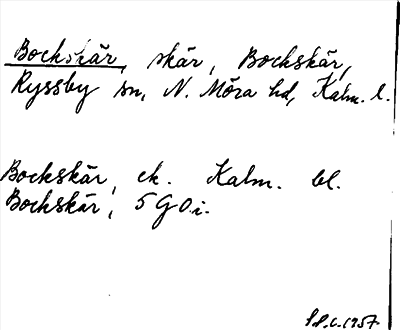 Bockskär, skär, Bockskär,
Ryssby sn, N. Möra hd, Kalm. l.
Bockskär, ek. Kalm. bl.
Bockskär, 5 G 0.i.
1957